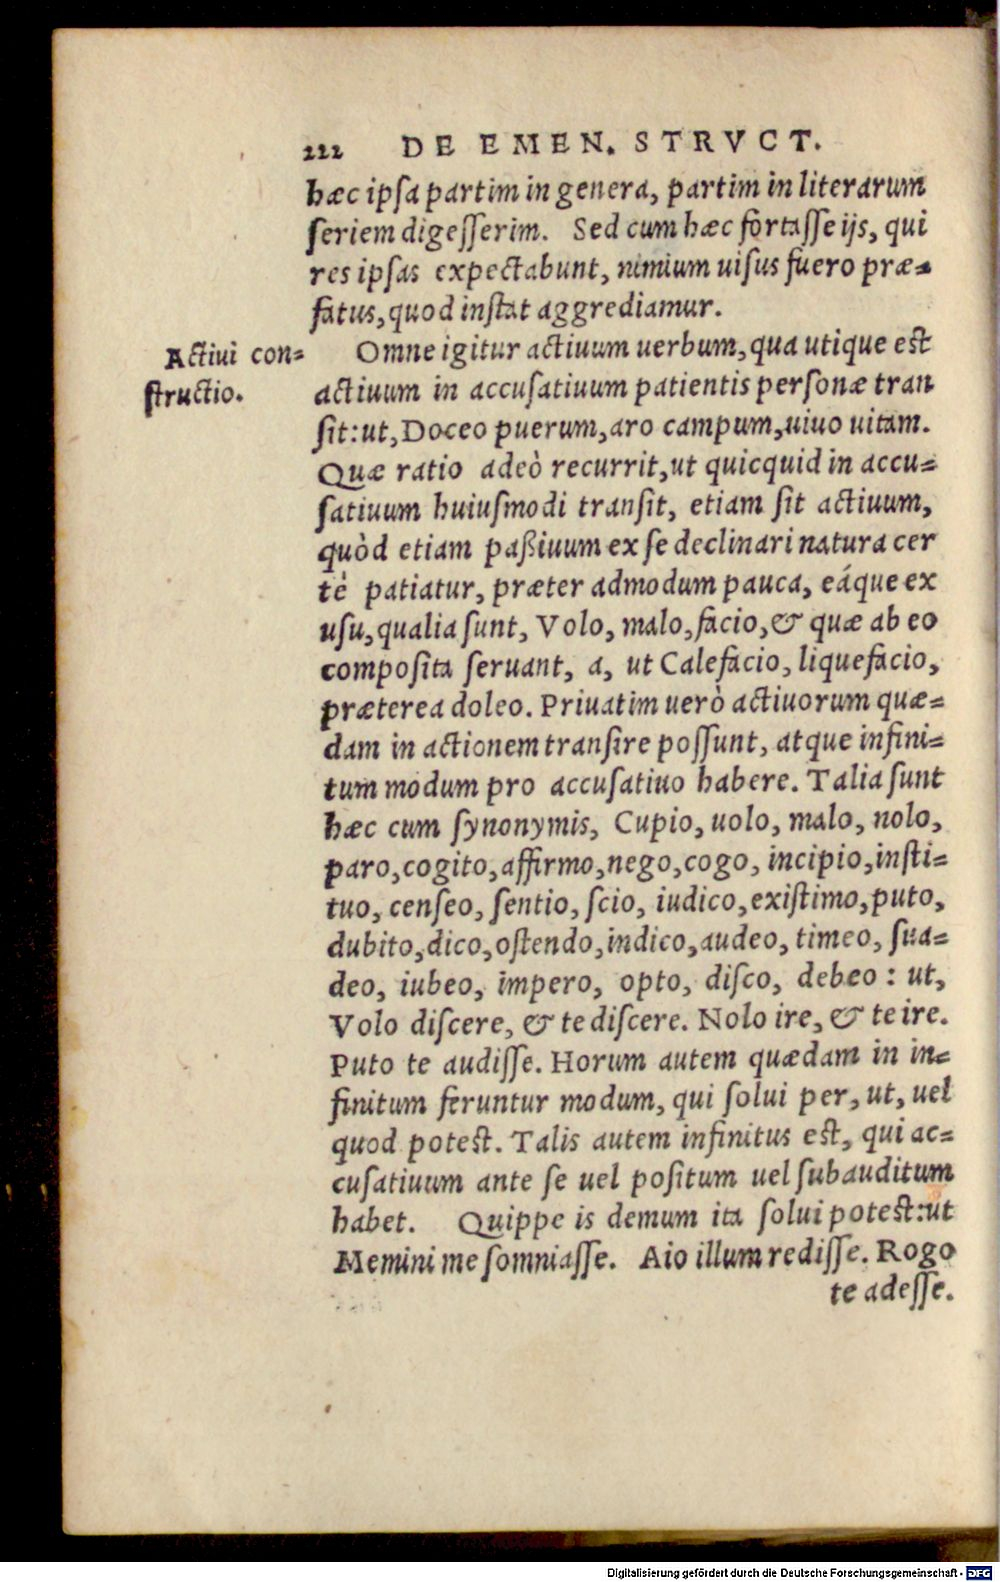 222 DE EMEN. STRVCT.
hæc ipsa partim in genera, partim in literarum
seriem digesserim. Sed cum hæc fortasse ijs, qui
res ipsas expectabunt, nimium uisus fuero præ-
fatus, quod instat aggrediamur.
Actiui con-
structio.
Omne igitur actiuum uerbum, qua utique est
actiuum in accusatiuum patientis personæ tran
sit: ut, Doceo puerum, aro campum, uiuo uitam.
Quæ ratio adeò recurrit, ut quicquid in accu-
satiuum huiusmodi transit, etiam sit actiuum,
quòd etiam paßiuum ex se declinari natura cer
tè patiatur, præter admodum pauca, eáque ex
usu, qualia sunt, Volo, malo, facio, & quæ ab eo
composita seruant, a, ut Calefacio, liquefacio,
præterea doleo. Priuatim uerò actiuorum quæ-
dam in actionem transire possunt, atque infini-
tum modum pro accusatiuo habere. Talia sunt
hæc cum synonymis, Cupio, uolo, malo, nolo,
paro, cogito, affirmo, nego, cogo, incipio, insti-
tuo, censeo, sentio, scio, iudico, existimo, puto,
dubito, dico, ostendo, indico, audeo, timeo, sua-
deo, iubeo, impero, opto, disco, debeo : ut,
Volo discere, & te discere. Nolo ire, & te ire.
Puto te audisse. Horum autem quædam in in-
finitum feruntur modum, qui solui per, ut, uel
quod potest. Talis autem infinitus est, qui ac-
cusatiuum ante se uel positum uel subauditum
habet. Quippe is demum ita solui potest: ut
Memini me somniasse. Aio illum redisse. Rogo
te adesse.
Digitalisierung gefördert durch die Deutsche Forschungsgemeinschaft - DFG